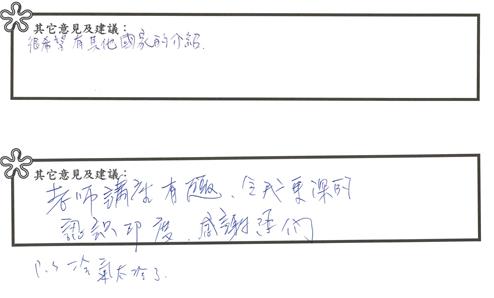 其它意見及建議：
很希望有其他國家的介紹.
其它意見及建議：
老師講話有趣、令我更深的
認識印度、感謝你們
P.S 冷氣太冷了.